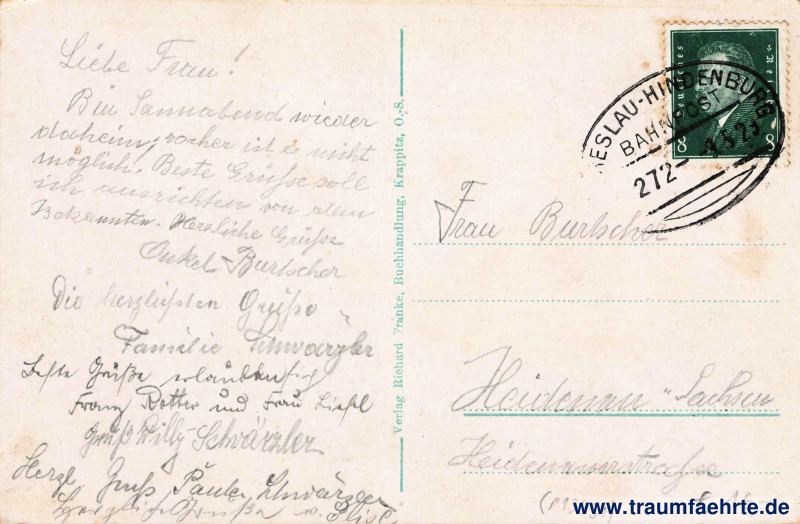 Liebe Frau!
Bin Sonnabend wieder
daheim, vorher ist es nicht
möglich! Beste Grüsse soll
ich ausrichten von allen
Bekannten. Herzliche Grüsse
Onkel Burtscher
Die herzlichsten Grüße
Familie Schwärzler
Beste Grüße erlauben sich
Franz Rotter und Frau Liesl
Gruß Willy Schwärzler
Herzl. Gruß Paula Schwärzler
Herzlich Grüße
Verlag Richard Franke, Buchhandlung, Krappitz, O.-S.
Deutsches Reich
8 8
BRESLAU-HINDENBURG
BAHNPOST
272
Frau Burtscher
Heidenau-Sachsen
Heidenauerstrasse
www.traumfaehrte.de